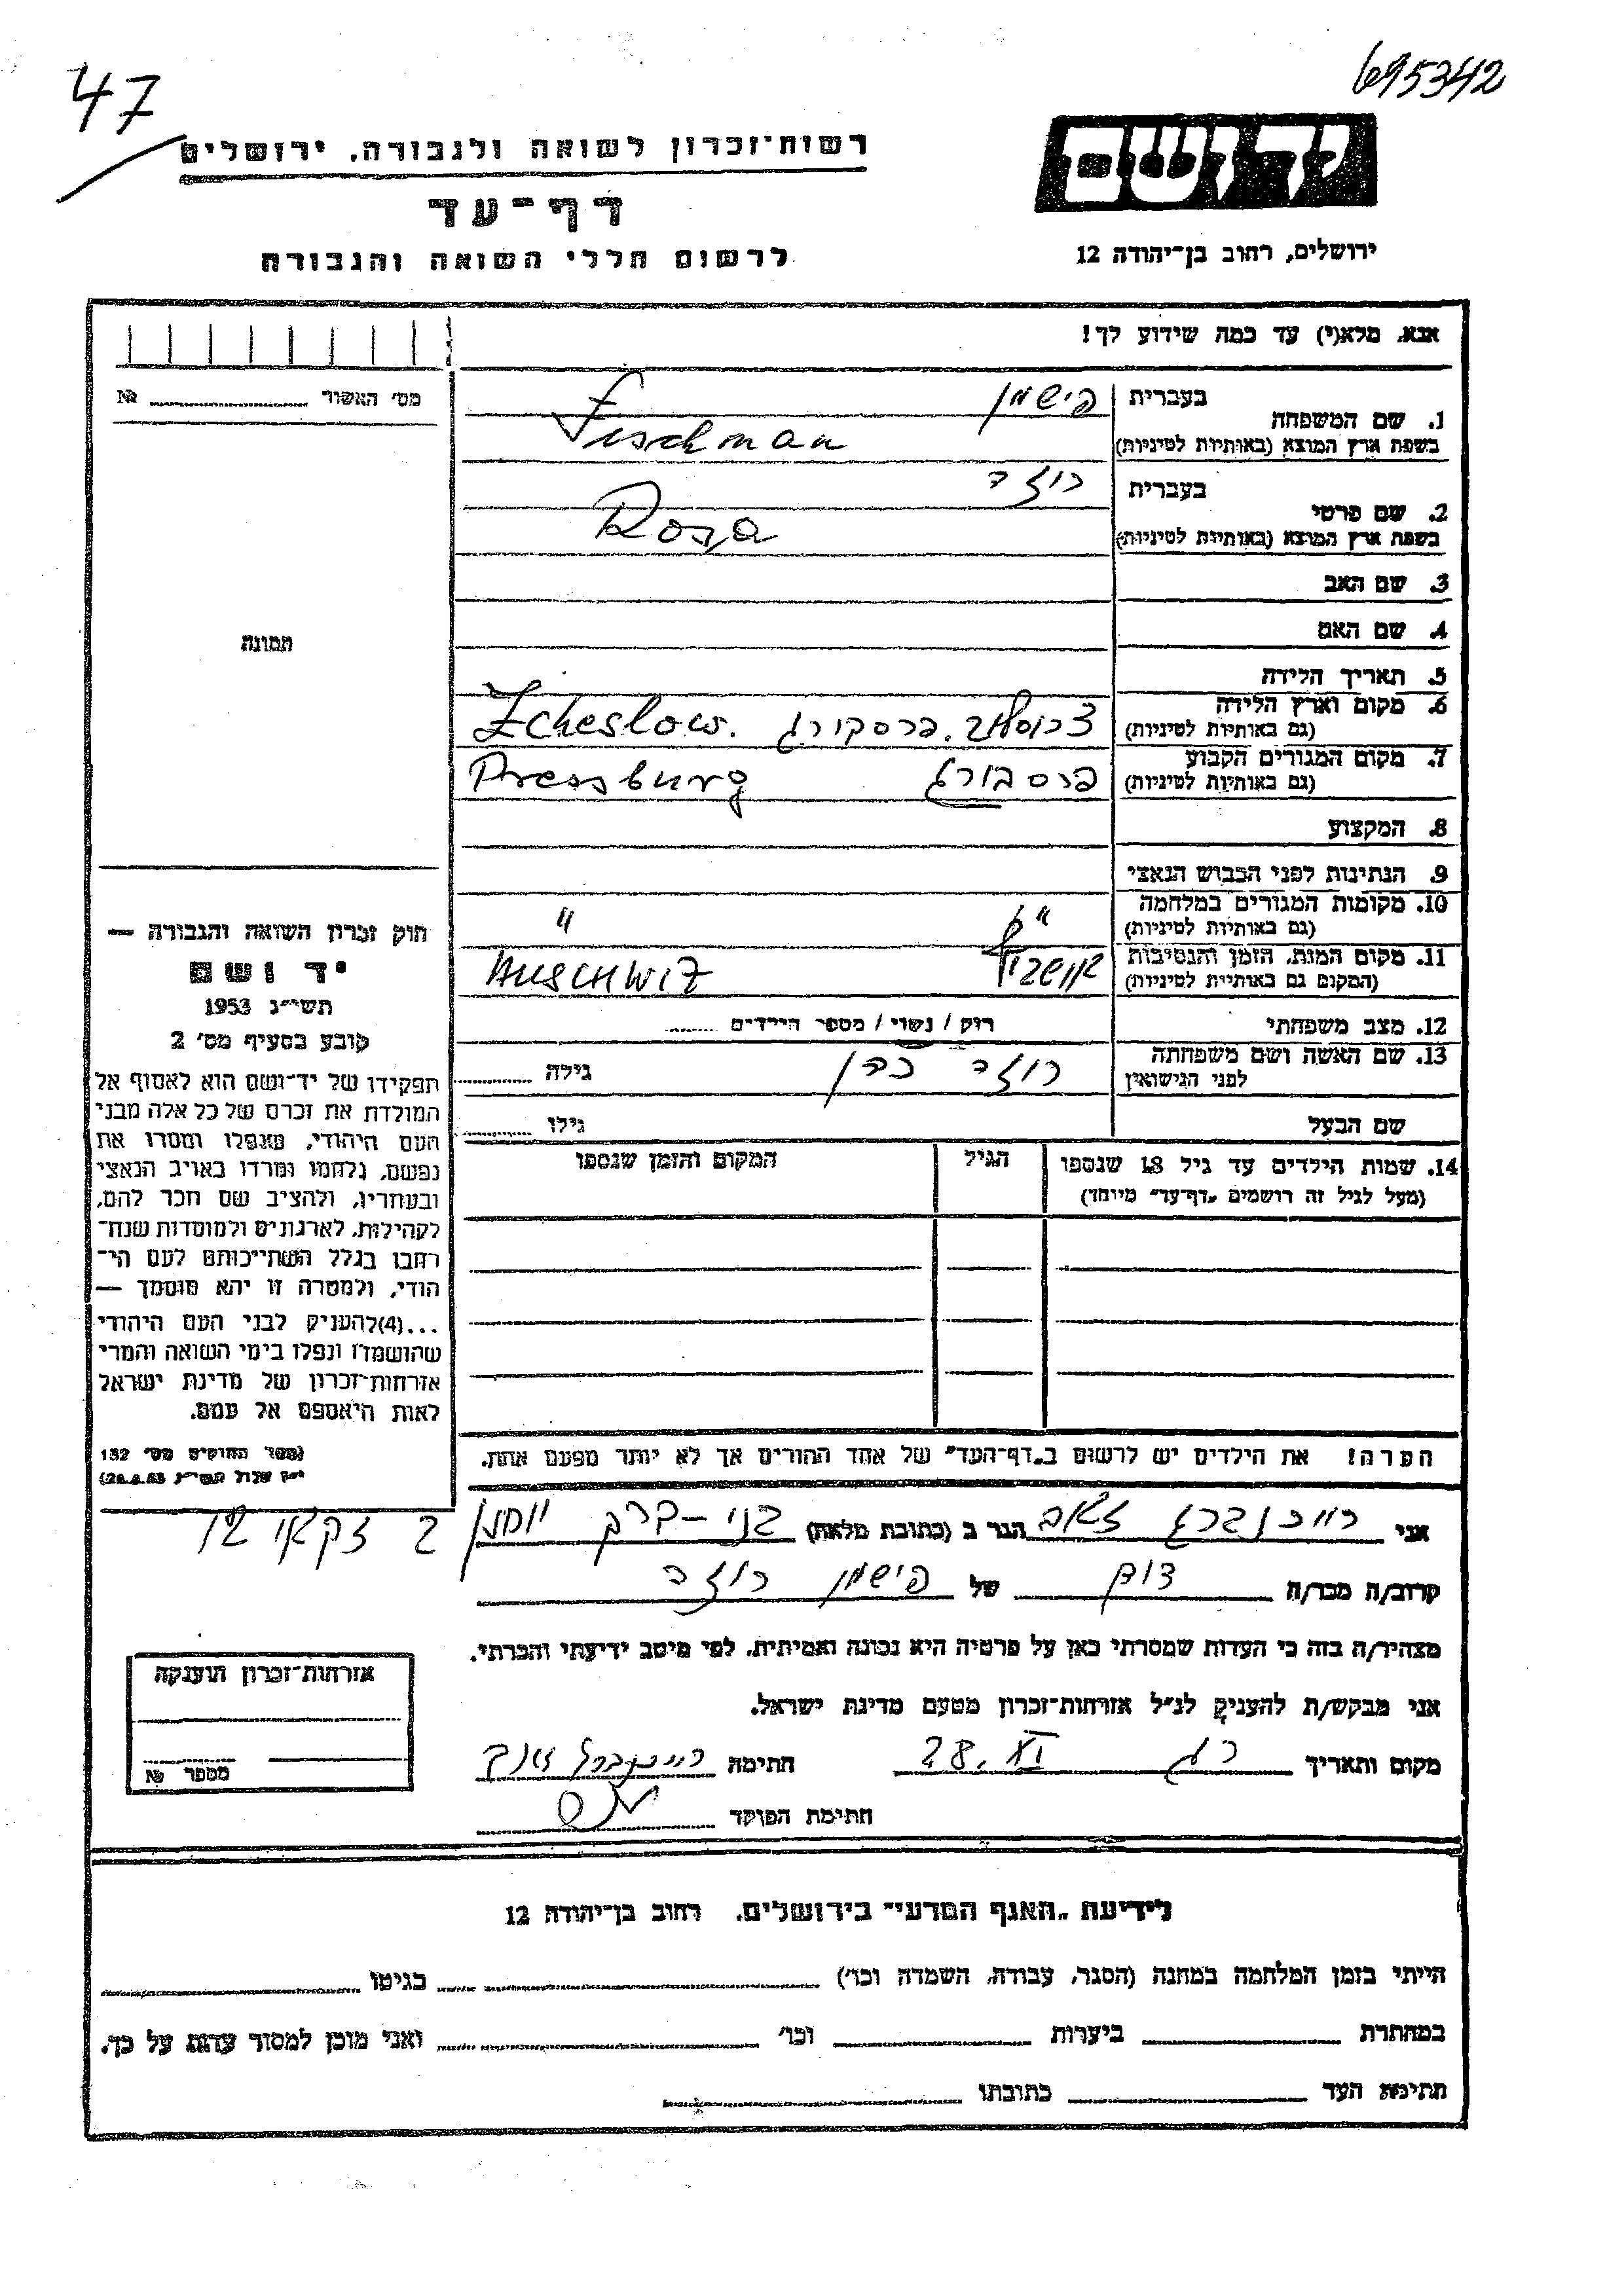 47
695342
רשות־זכרון לשואה ולגבורה, ירושלים
דף־עד
לרשום חללי השואה והגבורה
יד ושם
ירושלים, רחוב בן־יהודה 12
אנא, מלא(י) עד כמה שידוע לך!
מס׳ האשור № 
1. שם המשפחה
בעברית פישמן
בשפת ארץ המוצא (באותיות לטיניות) Fischman
2. שם פרטי
בעברית רוזה
בשפת ארץ המוצא (באותיות לטיניות) Rosa
3. שם האב
4. שם האם
תמונה
5. תאריך הלידה
6. מקום וארץ הלידה
(גם באותיות לטיניות) פרסבורג Zcheslow.
7. מקום המגורים הקבוע
(גם באותיות לטיניות) פרסבורג Pressburg
8. המקצוע
9. הנתינות לפני הכבוש הנאצי
10. מקומות המגורים במלחמה
(גם באותיות לטיניות) " "
11. מקום המות, הזמן והנסיבות
(המקום גם באותיות לטיניות) AUSCHWIZ
12. מצב משפחתי רוק / נשוי / מספר הילדים
13. שם האשה ושם משפחתה
לפני הנישואין רוזה כהן גילה
שם הבעל גילו
14. שמות הילדים עד גיל 18 שנספו הגיל המקום והזמן שנספו
(מעל לגיל זה רושמים „דף־עד״ מיוחד)
חוק זכרון השואה והגבורה —
יד ושם
תשי״ג 1953
קובע בסעיף מס׳ 2
תפקידו של יד־ושם הוא לאסוף אל
המולדת את זכרם של כל אלה מבני
העם היהודי, שנפלו ומסרו את
נפשם, נלחמו ומרדו באויב הנאצי
ובעוזריו, ולהציב שם וזכר להם,
לקהילות, לארגונים ולמוסדות שנח־
רבו בגלל השתייכותם לעם הי־
הודי, ולמטרה זו יהא מוסמך —
...(4)להעניק לבני העם היהודי
שהושמדו ונפלו בימי השואה והמרי
אזרחות־זכרון של מדינת ישראל
לאות היאספם אל עמם.
(ספר החוקים מס׳ 132
הערה! את הילדים יש לרשום ב„דף־העד״ של אחד ההורים אך לא יותר מפעם אחת.
אני רייכנברג זאב הגר ב (כתובת מלאה) בני-ברק
קרוב/ה מכר/ה של פישמן רוזה
מצהיר/ה בזה כי העדות שמסרתי כאן על פרטיה היא נכונה ואמיתית, לפי מיטב ידיעתי והכרתי.
אני מבקש/ת להעניק לנ״ל אזרחות־זכרון מטעם מדינת ישראל.
מקום ותאריך 28.XI חתימה רייכנברג זאב
חתימת הפוקד
אזרחות־זכרון הוענקה
מספר №
לידיעת „האגף המדעי״ בירושלים, רחוב בן־יהודה 12
הייתי בזמן המלחמה במחנה (הסגר, עבודה, השמדה וכו׳) בגיטו
במחתרת ביערות וכו׳ ואני מוכן למסור עדות על כך.
חתימת העד כתובתו